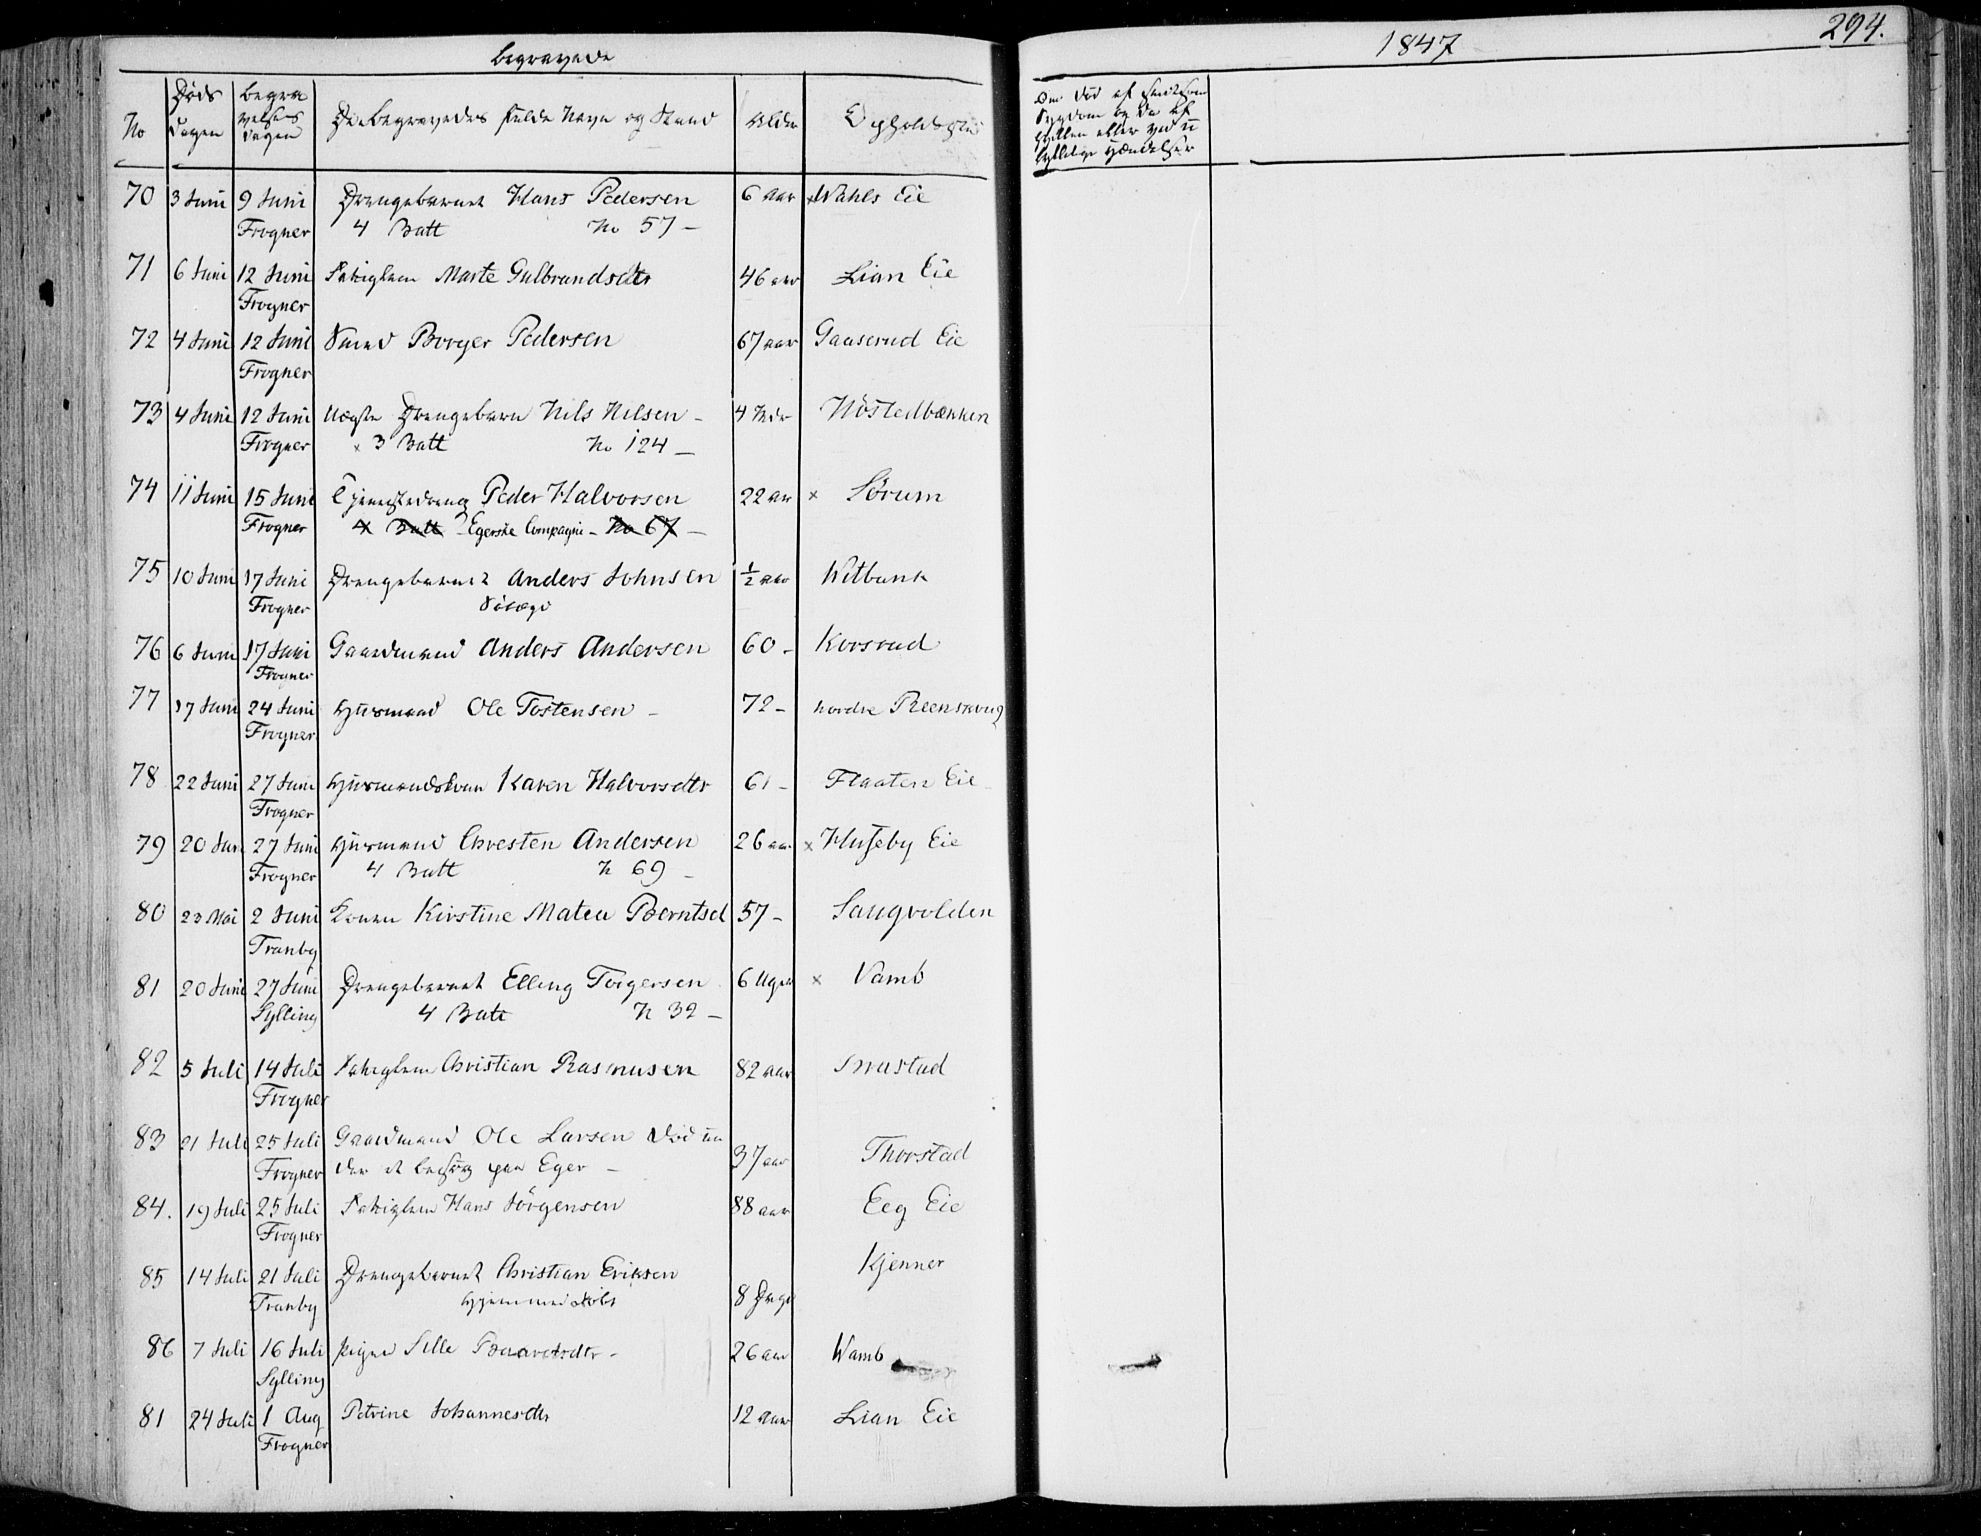 Begravede
1847
294.
No
Døds Dagen
Begravelses Dagen
De Begravedes fulde Navn og Stand
Alder
Opholdssted
70 3 Juni 9 Juni Drengebarnet Hans Pedersen 6 Aar × Wahls Eie
Frogner 4 Batt No 57 –
71 6 Juni 12 Juni Fattiglem Marte Gulbrandsdtr 46 aar Lian Eie
Frogner
72 4 Juni 12 Juni Smed Borger Pedersen 67 aar Gaaserud Eie
Frogner
73 4 Juni 12 Juni Uægte Drengebarn Nils Nilsen – 4 Mdr Høstedbækken
Frogner × 3 Batt No 124 –
74 11 Juni 15 Juni Tjenestedreng Peder Halvorsen 22 aar × Sørum
Frogner 4 Batt – Egerske Compagni – No 67 –
75 10 Juni 17 Juni Drengebarnet Anders Johnsen ½ aar Witbank
Frogner
76 6 Juni 17 Juni Gaardmand Anders Andersen 60 – Korsrud
Frogner
77 17 Juni 24 Juni Huusmand Ole Tostensen – 72 – nordre Reenskoug
Frogner
78 22 Juni 27 Juni Huusmandskone Karen Halvorsdtr 61 – Flaaten Eie
Frogner
79 20 Jun 27 Juni Huusmand Christen Andersen 26 aar × Huseby Eie
Frogner 4 Batt N 69 –
80 23 Mai 2 Juni Konen Kirstine Matea Berntsd 57 – Saugvolden
Tranby
81 20 Juni 27 Juni Drengebarnet Elling Torgersen 6 Uger × Vamb
Sylling 4 Batt N 32 –
82 5 Juli 14 Juli Fattiglem Christian Rasmusen 82 aar Brastad
Frogner
83 21 Juli 25 Juli Gaardmand Ole Larsen død un
Frogner der et besøg paa Eger – 37 aar Thorstad
84. 19 Juli 25 Juli Fattiglem Hans Jörgensen 88 aar Eeg Eie
Frogner
85 14 Juli 21 Juli Drengebarnet Christian Eriksen 8 Dage Kjenner
Tranby Hjemmedøbt
86 7 Juli 16 Juli Pigen Sille 26 aar Wamb
Sylling
81 24 Juli 1 Aug Petrine Johannesdtr 12 Aar Lian Eie
Frogner